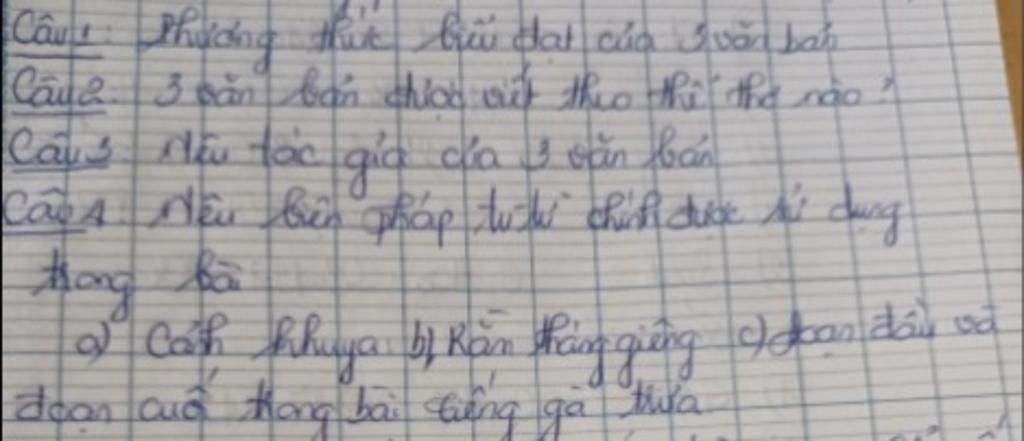 Câu 1: Phương thức biểu đạt của 3 văn bản
Câu 2: 3 văn bản được viết theo thể thơ nào?
Câu 3 Nêu tác giả của 3 văn bản
Câu 4: Nêu biện pháp tu từ chính được sử dụng
trong bài
a) Cảnh khuya b) Rằm tháng giêng c) đoạn đầu và
đoạn cuối trong bài tiếng gà trưa